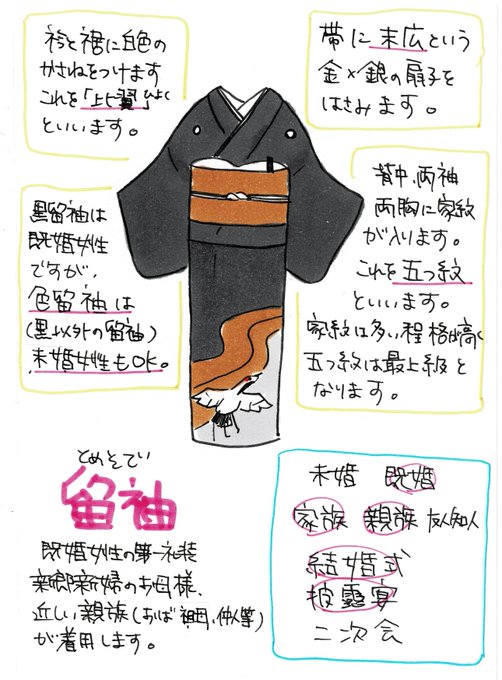 衿と裾に白色の
かさねをつけます
これを「上比翼」ひよく
といいます。
帯に末広という
金×銀の扇子を
はさみます。
黒留袖は
既婚女性
ですが、
色留袖は
(黒以外の留袖)
未婚女性もOK。
背中、両袖
両胸に家紋
が入ります。
これを五つ紋
といいます。
家紋は多い程格が高く
五つ紋は最上級と
なります。
とめそで
留袖
既婚女性の第一礼装
新郎新婦のお母様、
近しい親族(おば 祖母、仲人等)
が着用します。
未婚 既婚
家族 親族 友人知人
結婚式
披露宴
二次会